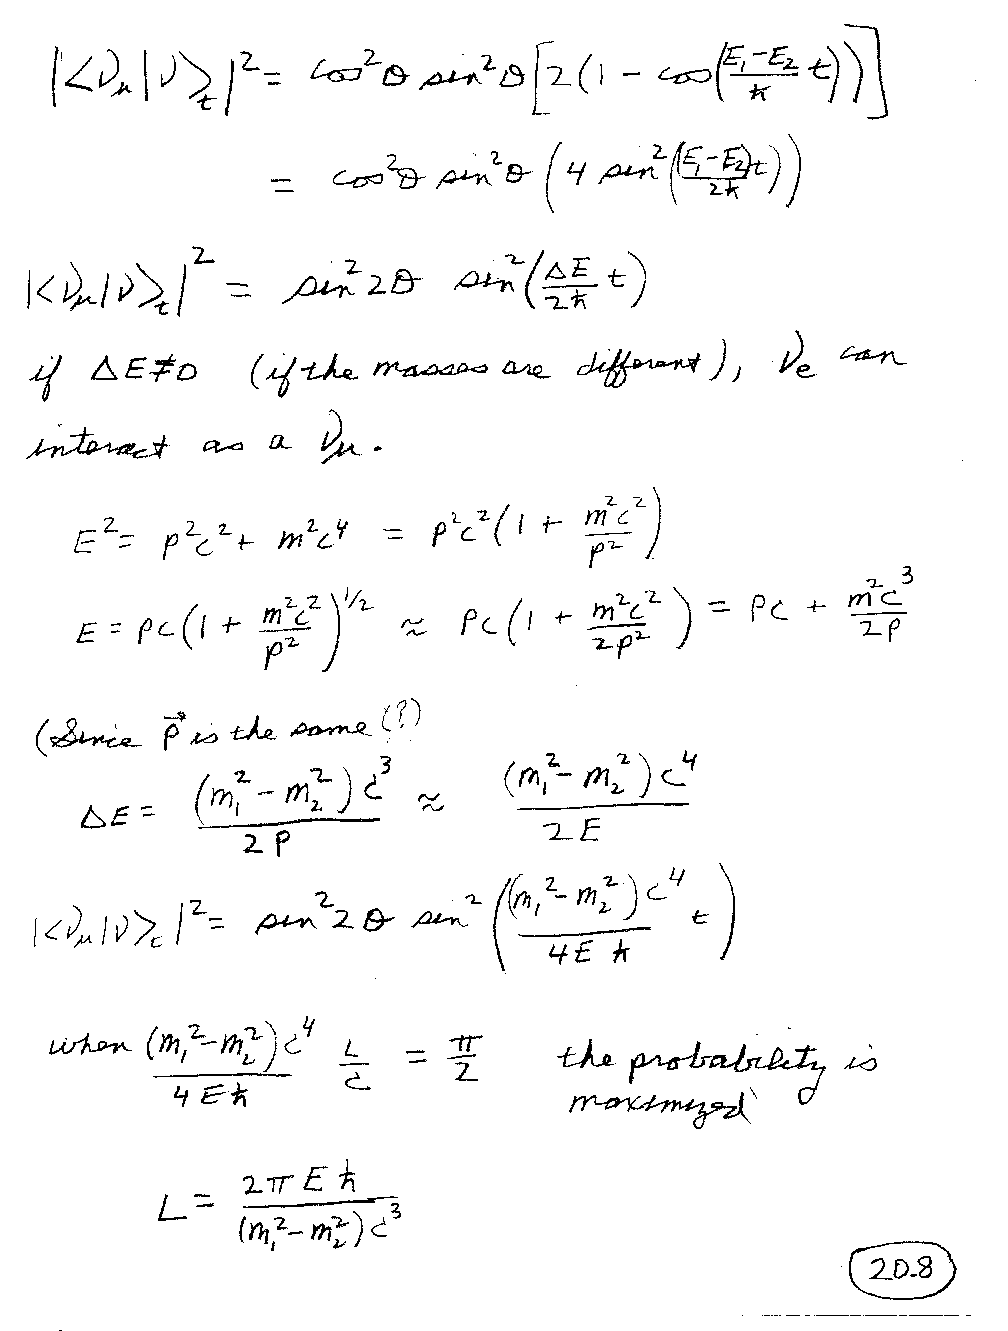 |<ν_μ|ν>_t|² = cos²θ sin²θ [2(1 - cos((E₁-E₂)/ħ t))]
= cos²θ sin²θ (4 sin²((E₁-E₂)t/2ħ))
|<ν_μ|ν>_t|² = sin²2θ sin²(ΔE/2ħ t)
if ΔE≠0 (if the masses are different), ν_e can
interact as a ν_μ.
E² = p²c² + m²c⁴ = p²c²(1 + m²c²/p²)
E = pc(1 + m²c²/p²)^1/2 ≈ pc(1 + m²c²/2p²) = pc + m²c³/2p
(Since p⃗ is the same (?)
ΔE = (m₁² - m₂²)c³/2p ≈ (m₁² - m₂²)c⁴/2E
|<ν_μ|ν>_t|² = sin²2θ sin²((m₁² - m₂²)c⁴/4Eħ t)
when (m₁² - m₂²)c⁴/4Eħ L/c = π/2 the probability is
maximized
L = 2πEħ/(m₁² - m₂²)c³
20.8